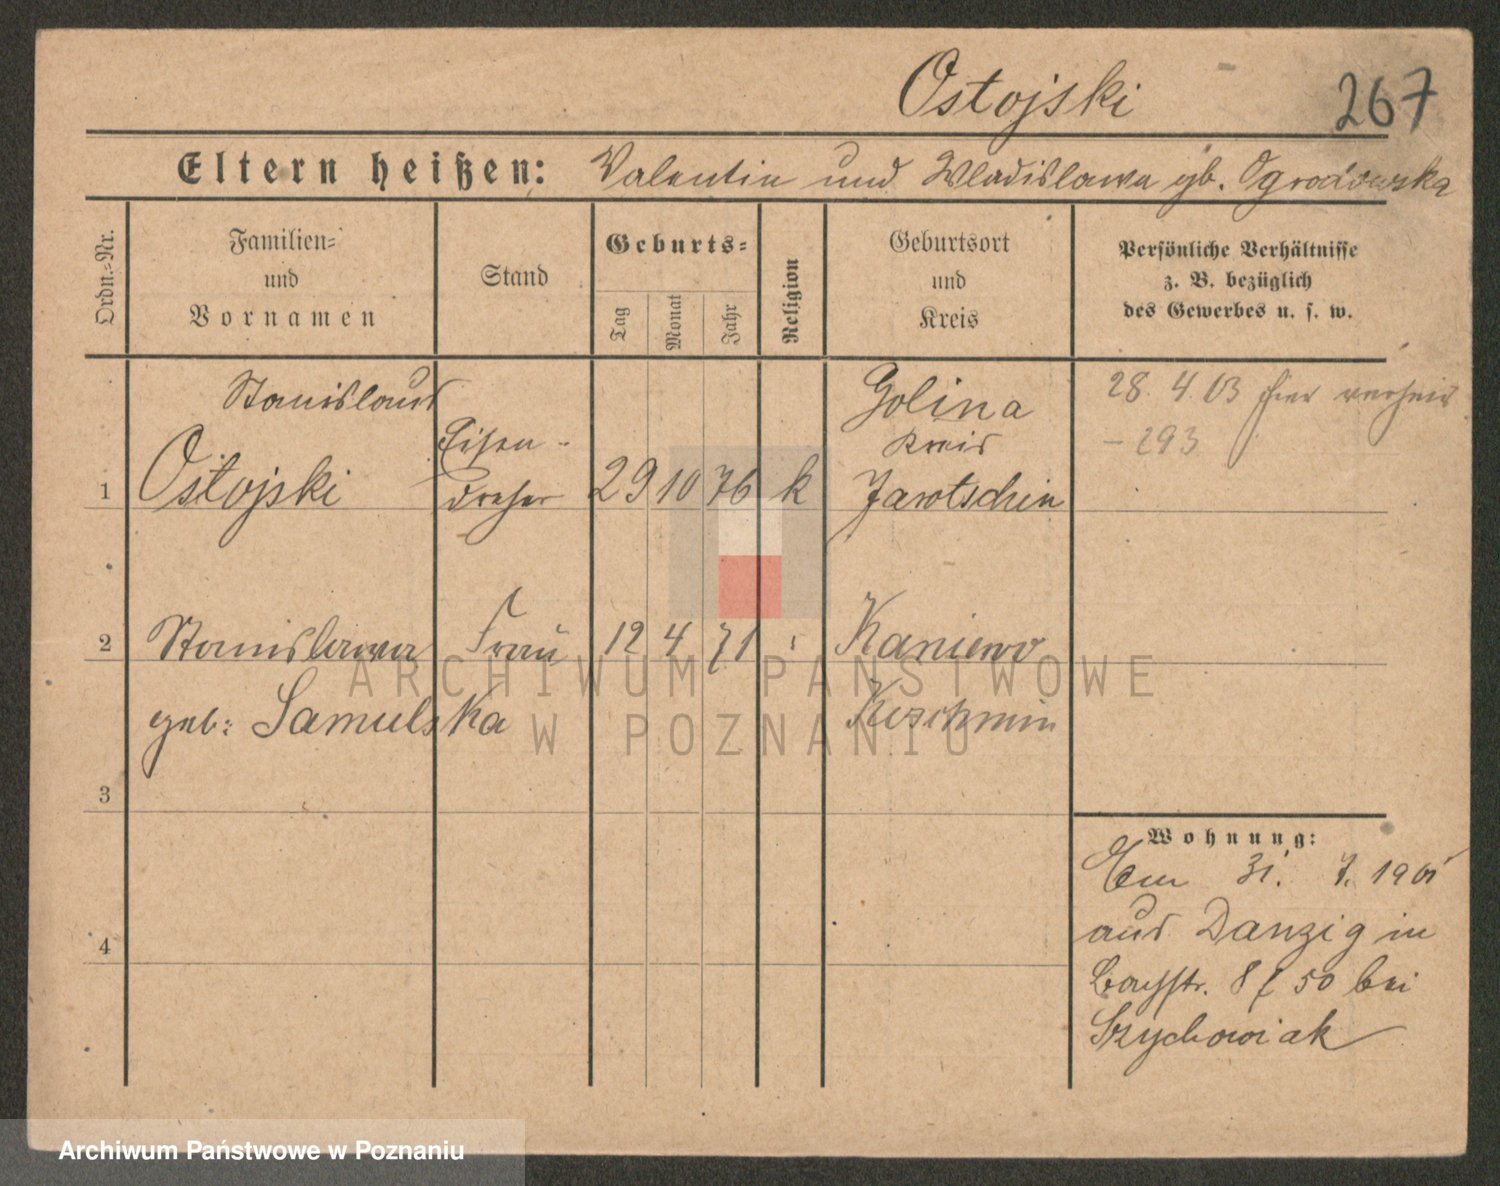 Ostojski
267
Eltern heißen: Valentin und Wladislawa gb. Ogrodowska
Ordn.-Nr.
Familien- und Vornamen
Stand
Geburts-
Tag
Monat
Jahr
Religion
Geburtsort und Kreis
Persönliche Verhältnisse
z. B. bezüglich
des Gewerbes u. s. w.
Stanislaus
Golina
28. 4. 03 hier verheir
Eisen-
Kreis
- 293
1 Ostojski dreher 29 10 76 k Jarotschin
2 Stanislawa Frau 12 4 71 Kaniewo
geb: Samulska
3
4
Wohnung:
31. 7. 190
aus Danzig in
8 50 bei
Szychowiak
ARCHIWUM PAŃSTWOWE
W POZNANIU
Archiwum Państwowe w Poznaniu